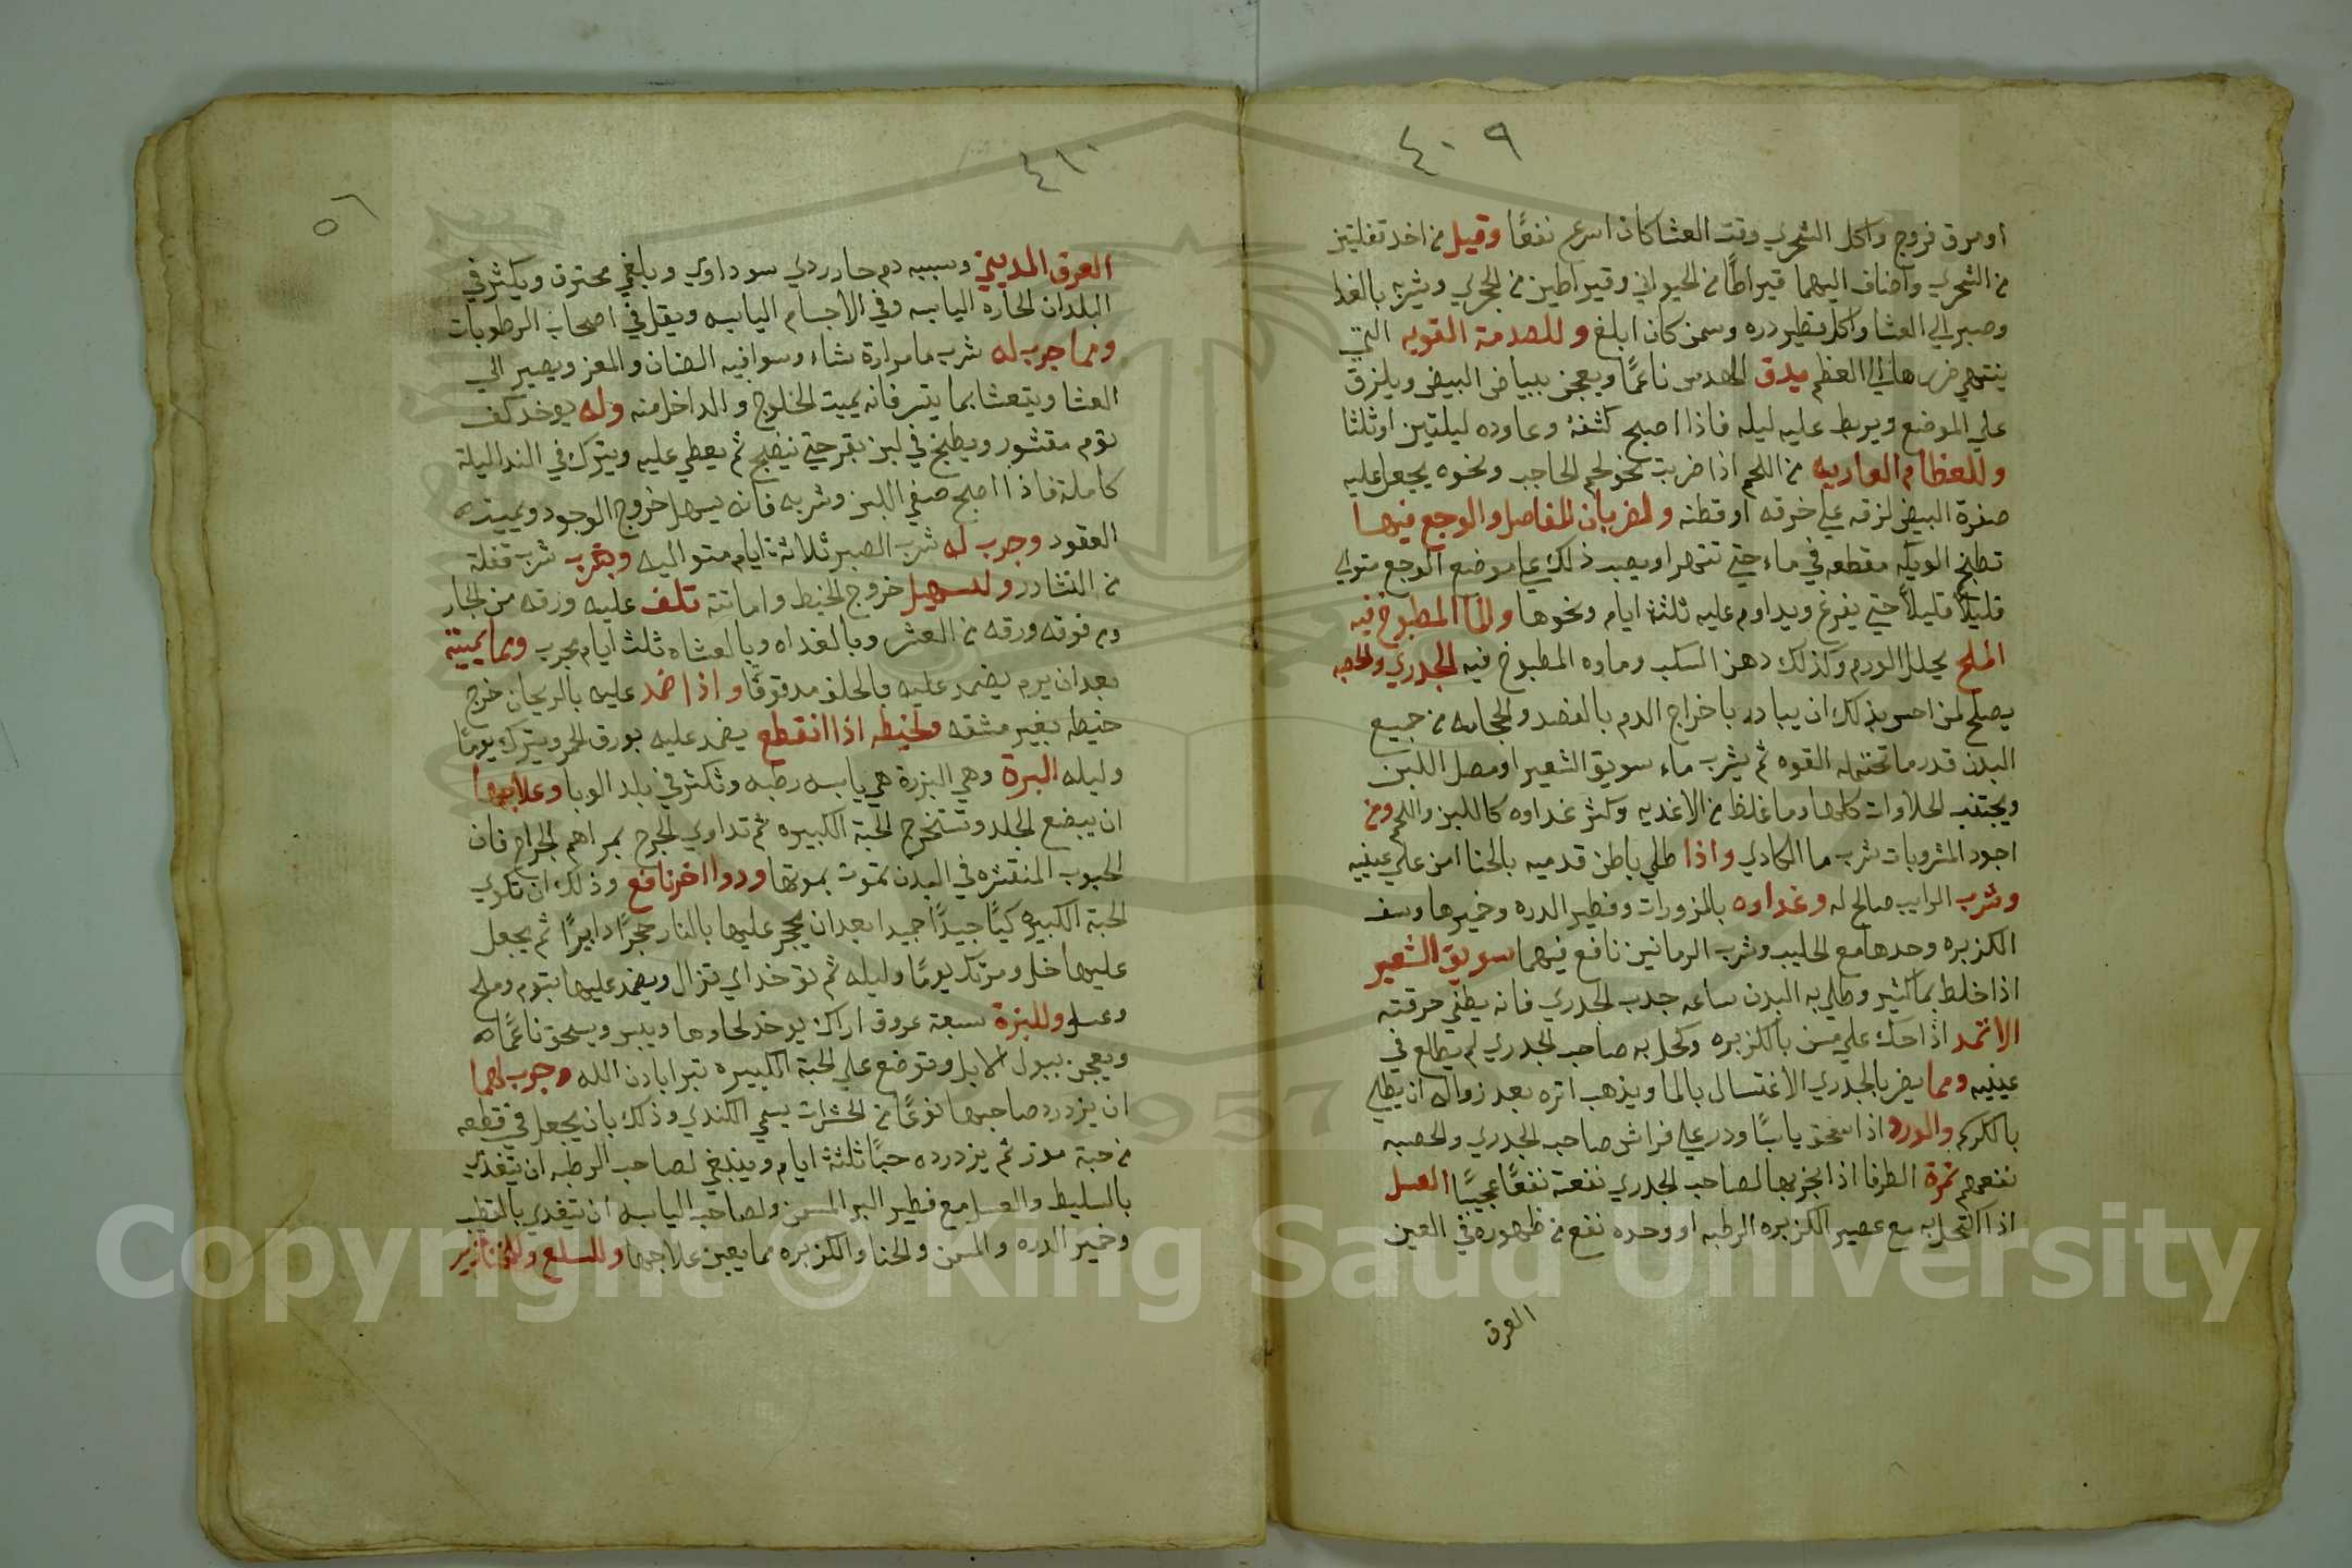 ٤٠٩
او مرق فروج واكل الشحري وقت العشا كان اسرع نفعًا وقيل من اخد تفلتين
من الشحري واضاف اليهما قيراطًا من الحيواني وقيراطين من الحجري وشربه بالغدا
وصبر الي العشا واكل فطير دره وسمن كان ابلغ وللصدمة القويه التي
ينتهي ضررها الي العظم يدق العدس ناعمًا ويعجن ببياض البيض ويلزق
علي الموضع ويربط عليه ليله فاذا اصبح كشفه وعاوده ليلتين او ثلثا
وللعظام العاريه من اللحم اذا ضربت نحو لحم الحاجب ونحوه يجعل عليه
صفرة البيض لزقه علي خرقه او قطنه ولضربان المفاصل والوجع فيها
تطبخ الويكه مقطعه في ماء حتي تتهرا ويصب ذلك علي موضع الوجع متوالي
قليلًا قليلًا حتي يفرغ ويداوم عليه ثلثة ايام ونحوها والما المطبوخ فيه
الملح يحلل الورم وكذلك دهن السلب وماوه المطبوخ فيه الجدري والحصبه
يصلح لمن احس بذلك ان يبادر باخراج الدم بالفصد والحجامه من جميع
البدن قدر ما تحتمله القوه ثم يشرب ماء سويق الشعير او مصل اللبن
ويجتنب الحلاوات كلها وما غلظ من الاغديه وكثر غداوه كاللبن واللحم ومن
اجود المشروبات شرب ما الكادي واذا طلي باطن قدميه بالحنا امن علي عينيه
وشرب الرايب صالح له وغداوه بالمزورات وفطير الدره وخميرها وسف
الكزبره وحدها مع الحليب وشرب الرمانين نافع فيهما سويق الشعير
اذا خلط بما كثير وطلي به البدن ساعه جدب الجدري فانه يطفي حرقته
الاثمد اذا حك علي مسن بالكزبره وكحل به صاحب الجدري لم يطلع في
عينيه ومما يضر بالجدري الاغتسال بالما ويذهب اثره بعد زواله ان يطلي
بالكركم والورد اذا سحق يابسًا ودر علي فراش صاحب الجدري والحصبه
نفعهم ثمرة الطرفا اذا بخر بها لصاحب الجدري نفعته نفعًا عجيبًا العسل
اذا اكتحل به مع عصير الكزبره الرطبه او وحده نفع من ظهوره في العين
العرق
٤١٠
٥٦
العرق المديني وسببه دم حار ردي سوداوي وبلغم محترق ويكثر في
البلدان الحاره اليابسه وفي الاجسام اليابسه ويقل في اصحاب الرطوبات
ومما جرب له شرب ما مرارة شاء وسوافيه الضان والمعز ويصير الي
العشا ويتعشا بما يتسر فانه يميت الخارج والداخل منه وله يوخد كف
توم مقشور ويطبخ في لبن بقر حتي ينضج ثم يعطي عليه ويترك في الندا ليلة
كاملة فاذا اصبح صفي اللبن وشربه فانه يسهل خروج الوجود ويميته
العقود وجرب له شرب الصبر ثلاثة ايام متواليه وبقرب شرب قفلة
من النشادر ولتسهيل خروج الخيط واماتته تلف عليه ورقه من الجبار
ومن فوقه ورقه من العشر وبالغداه وبالعشاه ثلث ايام مجرب ومما يميته
بعد ان يرم يضمد عليه بالحلف مدقوقًا واذا ضمد عليه بالريحان خرج
خيطه بغير مشقه ولخيطه اذا انقطع يضمد عليه بورق الحمر ويترك يومًا
وليله البرة وهي البزرة هي يابسه رطبه وتكثر في بلد الوبا وعلاجها
ان يبضع الجلد وتستخرج الحبة الكبيره ثم تداوي الجرح بمراهم الجراح فان
الحبوب المنتشره في البدن تموت بموتها ودوا اخر نافع وذلك ان تكوي
الحبة الكبيره كيًا جيدًا حميدا بعد ان يحجر عليها بالنار حجرًا دايرًا ثم يجعل
عليها خل ومرتك يومًا وليله ثم توخد اي تزال ويضمد عليها بتوم وملح
وعسل وللبزة سبعة عروق اراك يوخد لحاوها ويبس ويسحق ناعمًا
ويعجن ببول الابل وتوضع علي الحبة الكبيره تبرا بادن الله وجرب لهما
ان يزدرد صاحبها نوعًا من الحشرات يسمي الكندي وذلك بان يجعل في قطعه
من حبة موز ثم يزدرده حبًا ثلثة ايام وينبغي لصاحب الرطبه ان يتغدي
بالسليط والعسل مع فطير البر المسمن ولصاحب اليابسه ان يتغدي بالقطيب
وخمير الدره والسمن والحنا والكزبره مما يعين علاجها وللسلع وللخنازير
Copyright © King Saud University
1957